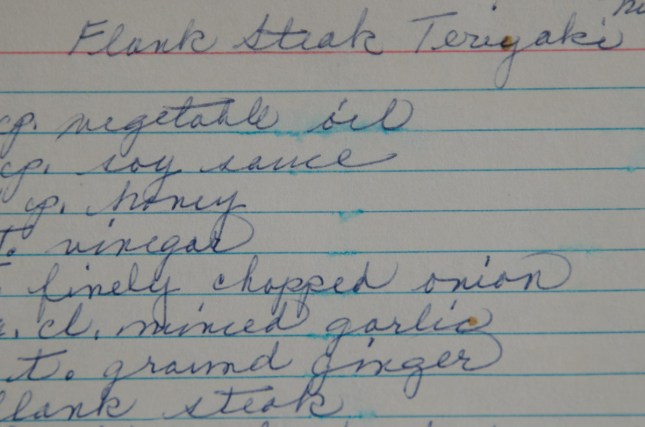 Flank Steak Teriyaki
cp. vegetable oil
cp. soy sauce
cp. honey
T. vinegar
finely chopped onion
cl. minced garlic
t. ground ginger
flank steak